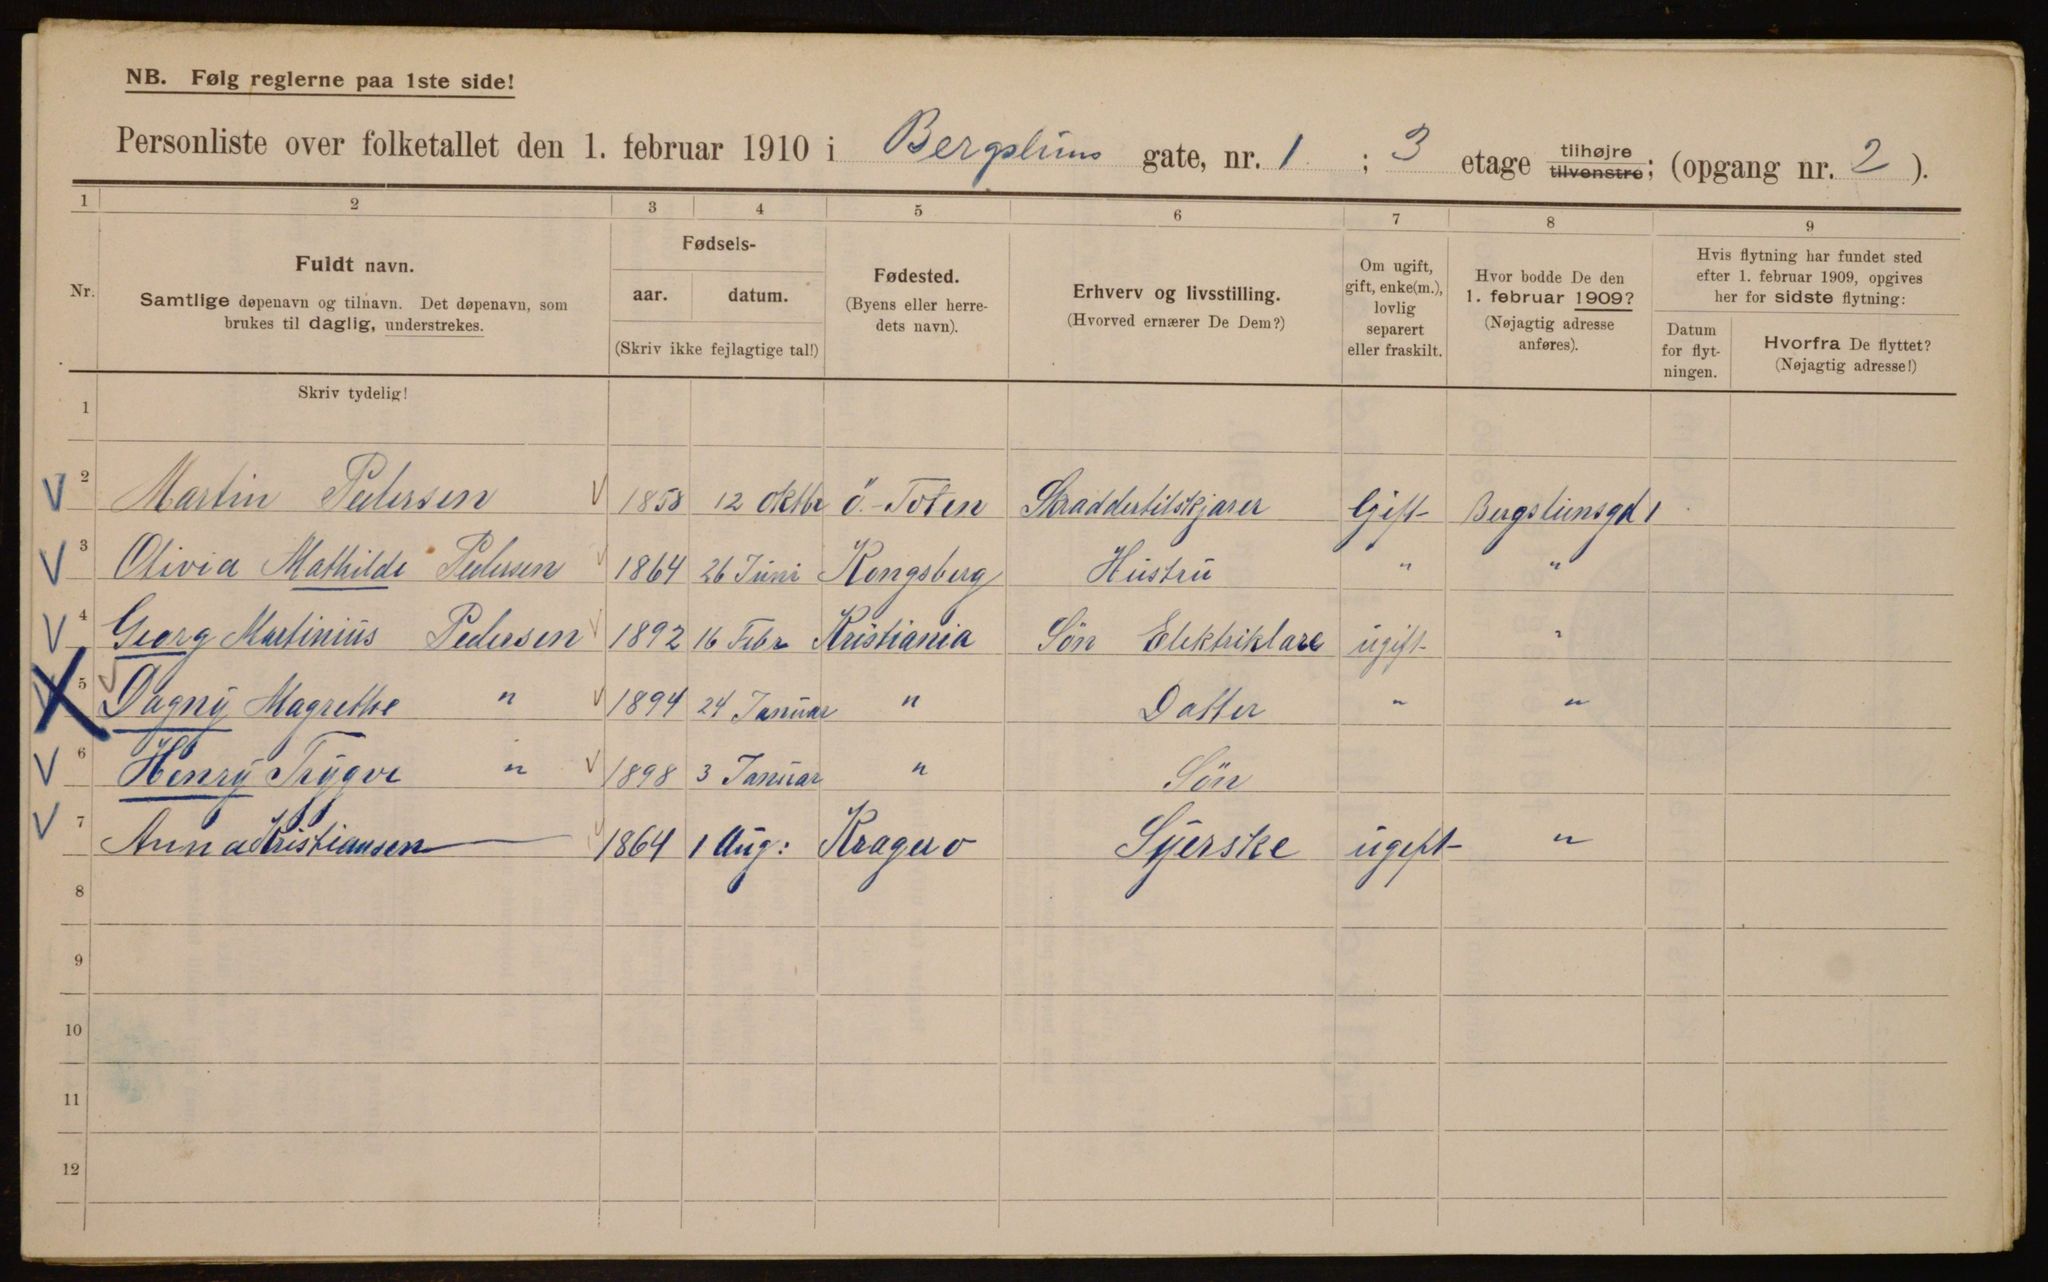 NB. Følg reglerne paa 1ste side!
Personliste over folketallet den 1. februar 1910 i Bergsliens gate, nr. 1 ; 3 etage tilhøjre tilvenstre; (opgang nr. 2 ).
1 2 3 4 5 6 7 8 9
Nr.
Fuldt navn.
Samtlige døpenavn og tilnavn. Det døpenavn, som
brukes til daglig, understrekes.
Fødsels-
aar. datum.
(Skriv ikke fejlagtige tal!)
Fødested.
(Byens eller herre-
dets navn).
Erhverv og livsstilling.
(Hvorved ernærer De Dem?)
Om ugift,
gift, enke(m.),
lovlig
separert
eller fraskilt.
Hvor bodde De den
1. februar 1909?
(Nøjagtig adresse
anføres).
Hvis flytning har fundet sted
efter 1. februar 1909, opgives
her for sidste flytning:
Datum
for flyt-
ningen.
Hvorfra De flyttet?
(Nøjagtig adresse!)
Skriv tydelig!
1
2 Martin Pedersen 1858 12 Oktbr Ö.-Toten Skraddertilskjarer Gift Bergsliensgd 1
3 Olivia Mathilde Pedersen 1864 26 Juni Kongsberg Hustru " "
4 Georg Martinius Pedersen 1892 16 Febr Kristiania Sön Elektriklare ugift "
5 Dagny Magrethe " 1894 24 Januar " Datter " "
6 Henry Trygve " 1898 3 Januar " Sön
7 Anna Kristiansen 1864 1 Aug: Kragero Syerske ugift "
8
9
10
11
12